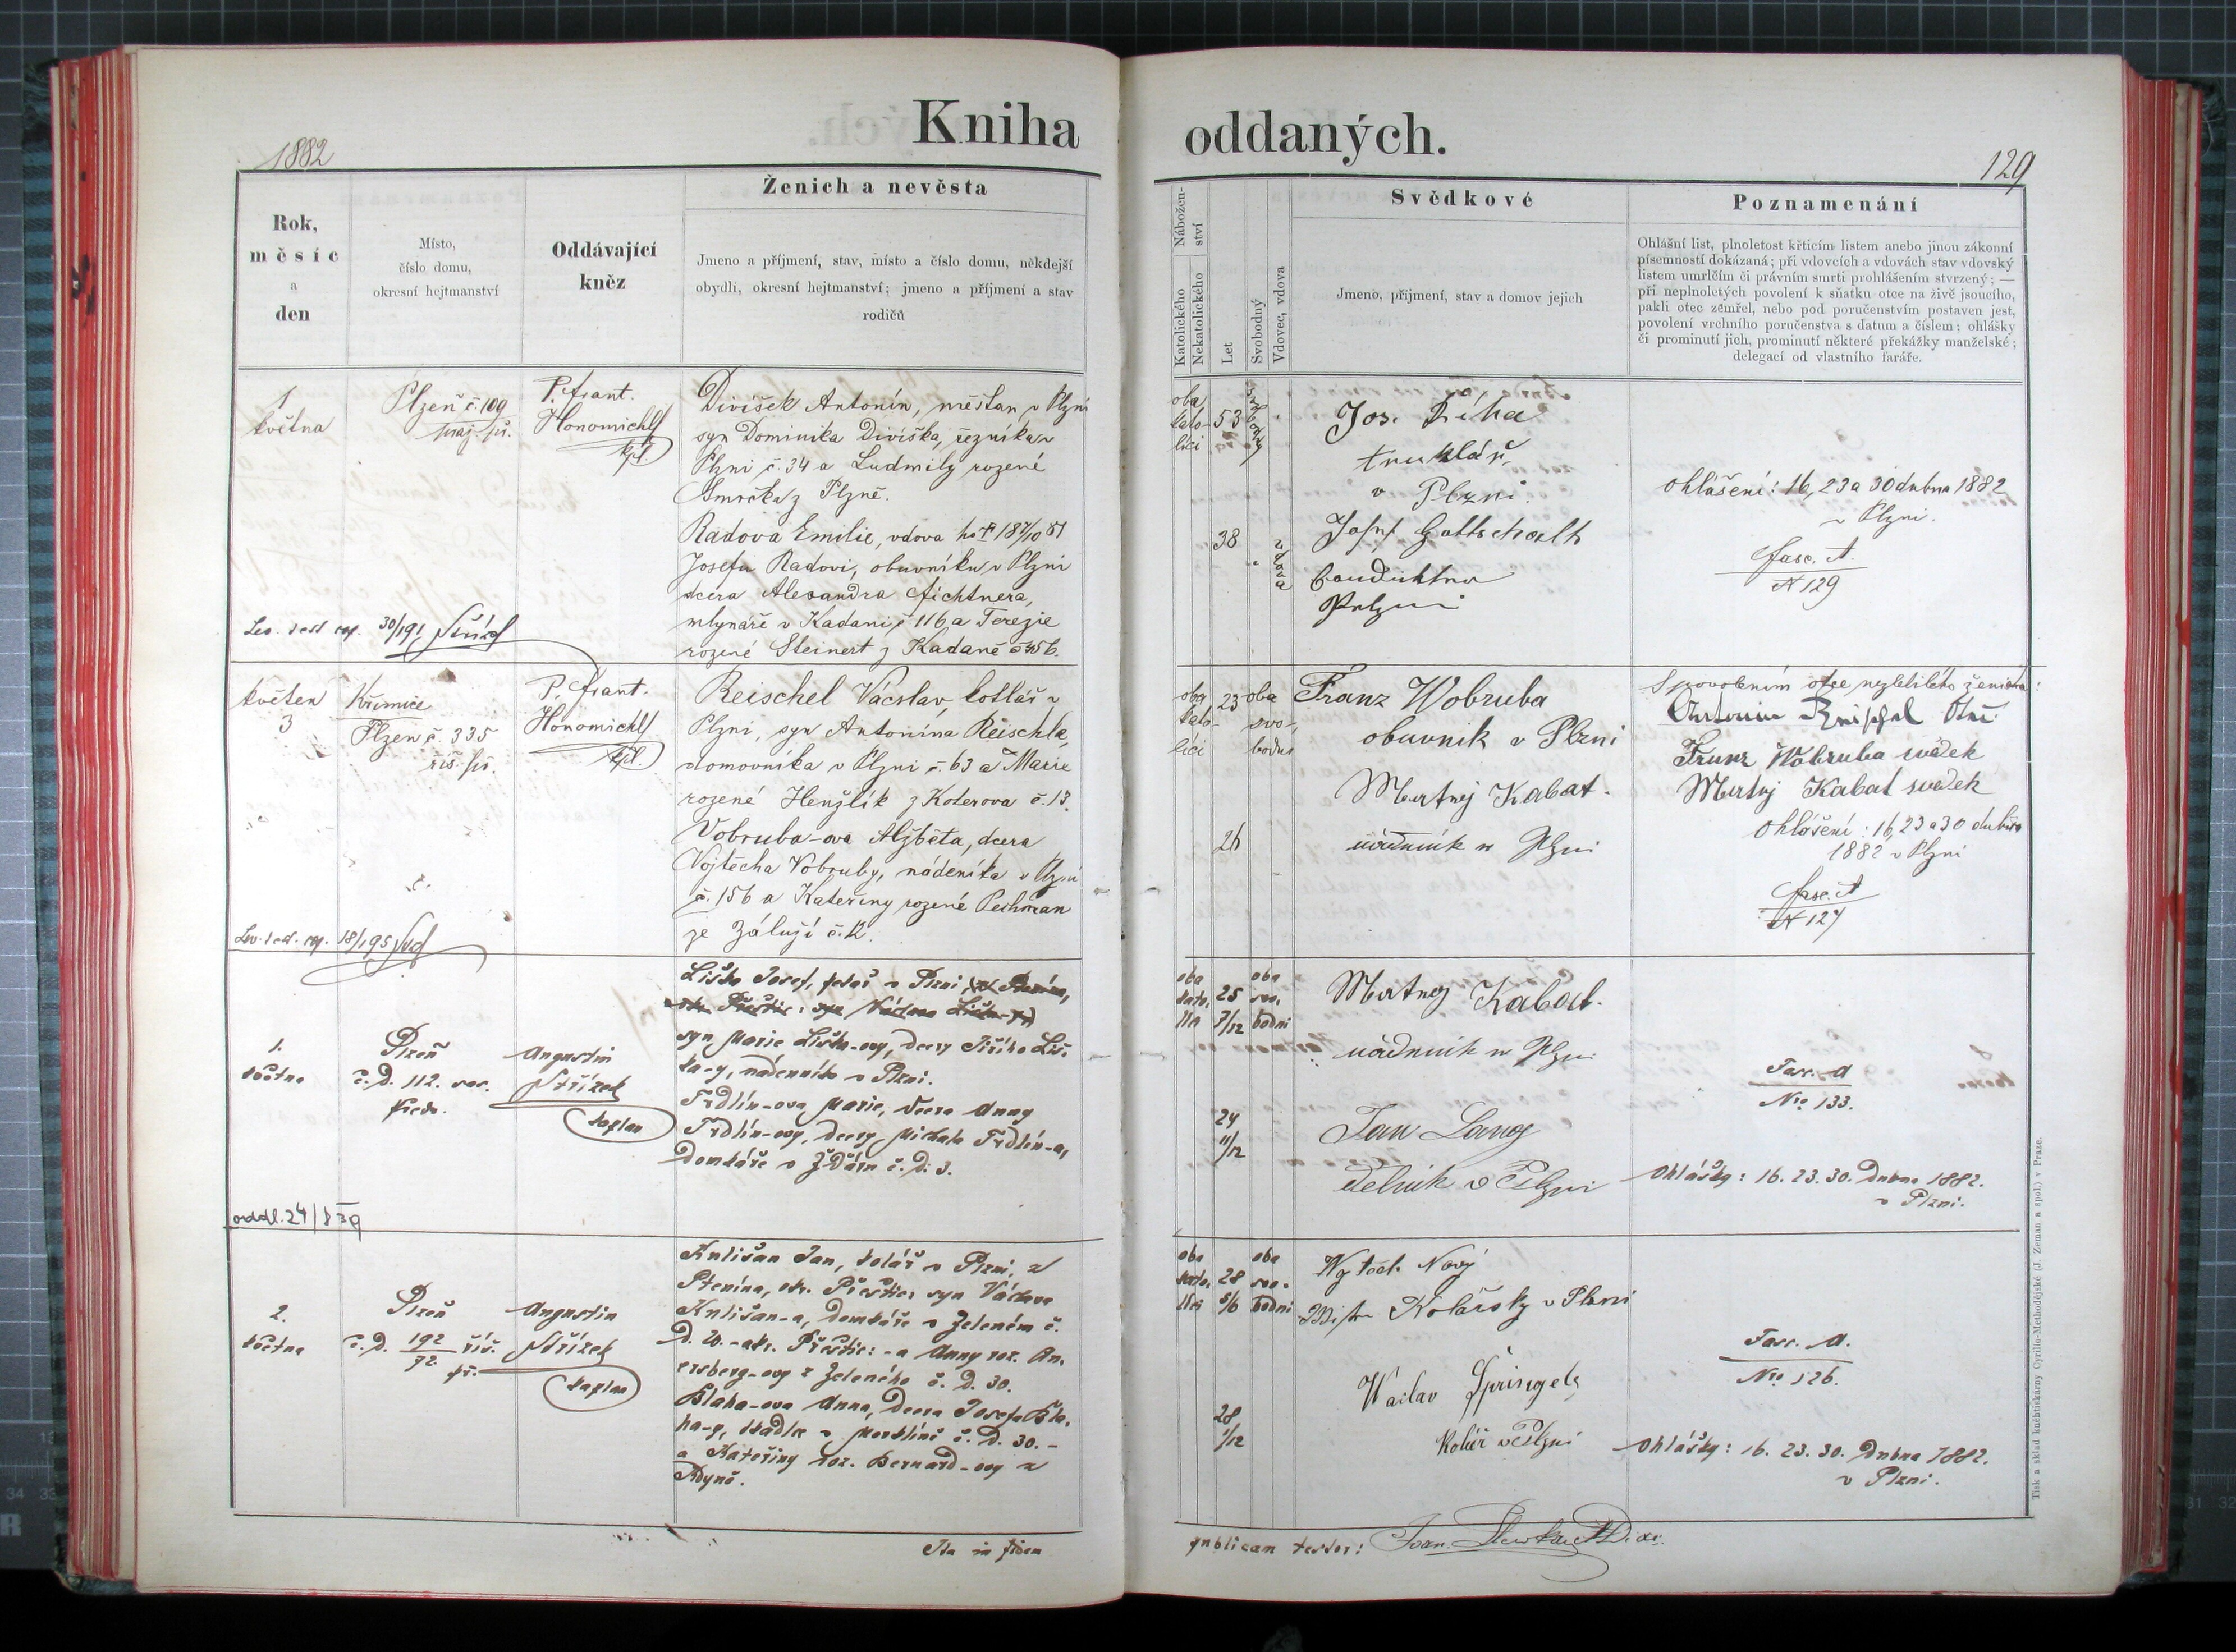 Kniha oddaných.
1882
129
Ženich a nevěsta
Rok,
měsíc
a
den
Místo,
číslo domu,
okresní hejtmanství
Oddávající
kněz
Jmeno a příjmení, stav, místo a číslo domu, někdejší
obydlí, okresní hejtmanství; jmeno a příjmení a stav
rodičů
Nábožen-
ství
Katolického
Nekatolického
Let
Svobodný
Vdovec, vdova
Svědkové
Jmeno, příjmení, stav a domov jejich
Poznamenání
Ohlášní list, plnoletost křticím listem anebo jinou zákonní
písemností dokázaná; při vdovcích a vdovách stav vdovský
listem umrlčím či právním smrti prohlášením stvrzený; —
při neplnoletých povolení k sňatku otce na živě jsoucího,
pakli otec zemřel, nebo pod poručenstvím postaven jest,
povolení vrchního poručenstva s datum a číslem; ohlášky
či prominutí jich, prominutí některé překážky manželské;
delegací od vlastního faráře.
1
května
Plzeň č. 109
praž. př.
P. Frant.
Honomichl
kpl.
Divíšek Antonín, měšťan v Plzni
syn Dominika Divíška, řezníka v
Plzni č. 34 a Ludmily rozené
Smrčka z Plzně.
Radova Emilie, vdova po
Josefu Radovi, obuvníku v Plzni
dcera Alexandra Fichtnera,
mlynáře v Kadani č 116 a Terezie
rozené Steinert z Kadaně
oba
kato-
lící
53
38
vdova
Jos. Říha
truhlář
v Plzni.
Josef Gottschalk
Conducteur
Pilzen
Ohlášení: 16, 23 a 30 dubna 1882
v Plzni.
fasc. A
N 129
květen
3
Křimice
Plzeň č. 335
říš. př.
P. Frant.
Honomichl
kpl.
Reischel Václav, kotlář v
Plzni, syn Antonína Reischla,
domovníka v Plzni č. 63 a Marie
rozené Henžlík z Koterova č. 13.
Vobruba-ova Alžběta, dcera
Vojtěcha Vobruby, nádeníka v Plzni
č. 156 a Kateřiny rozené Pechman
ze Záluží č. 12.
oba
kato-
líci
23
oba
svo-
bodní
26
Franz Wobruba
obuvnik v Plzni
Mertnej Kabat.
S povolením otce nezletilého ženicha:
Antonin Reischel
Franz Wobruba svědek
Mertnej Kabat svědek
Ohlášení: 16, 23 a 30 dubna
1882 v Plzni
fasc. A
N 127
1.
května
Plzeň
č. D. 112.
předm.
Augustin
Střízek
kaplan
Liška Josef, pekař v Plzni
syn Marie Liška-ovy, dcery Jiřího Liš-
ka-y, nádenníka v Plzni.
Trdlín-ova Marie, dcera Anny
Trdlín-ovy, dcery Michala Trdlín-a,
domkáře v Ždáru č. D. 3.
oba
kato.
lící
25
7/12
oba
svo.
bodni
24
11/12
Mertnej Kabat.
Jan Lang
v Plzni
Fasc. A
Nro 133.
Ohlášky: 16. 23. 30. Dubna 1882.
v Plzni.
2.
května
Plzeň
č. D. 192/72. říš.
př.
Augustin
Střízek
kaplan
Kulišan Jan, kolář v Plzni, z
Ptenína, okr. Přeštic: syn Václava
Kulišan-a, domkáře v Zeleném č.
D. 20. - okr. Přeštic: - a Anny roz. Au-
ersberg-ovy z Zeleného č. D. 30.
Blaha-ova Anna, dcera Josefa Bla-
ha-y, tkadlce v Merklíně č. D. 30. -
a Kateřiny roz. Bernard-ovy z
Kdyně.
oba
kato.
lici
28
5/6
oba
svo.
bodni
28
1/12
Nový
Kolářsky v Plzni
Waclav Springels
kolář v Plzni
Fasc. A.
Nro 126.
Ohlášky: 16. 23. 30. Dubna 1882.
v Plzni.
Ita in fidem
publicam testor:
Tisk a sklad knihtiskárny Cyrillo-Methodějské (J. Zeman a spol.) v Praze.